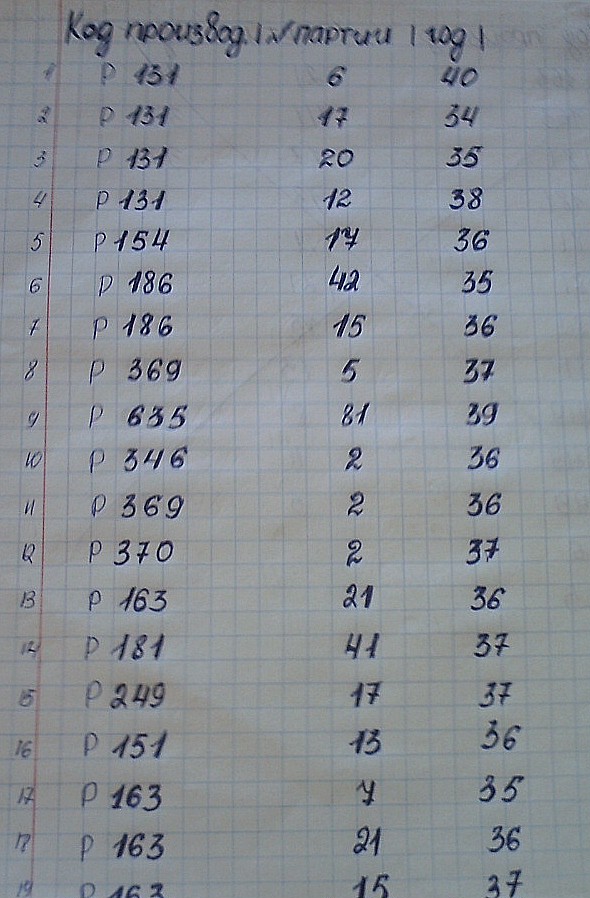 Код производ. | № партии | год |
1 P 131 6 40
2 P 131 17 34
3 P 131 20 35
4 P 131 12 38
5 P 154 17 36
6 P 186 42 35
7 P 186 15 36
8 P 369 5 37
9 P 635 81 39
10 P 346 2 36
11 P 369 2 36
12 P 370 2 37
13 P 163 21 36
14 P 181 41 37
15 P 249 17 37
16 P 151 13 36
17 P 163 7 35
18 P 163 21 36
19 P 163 15 37